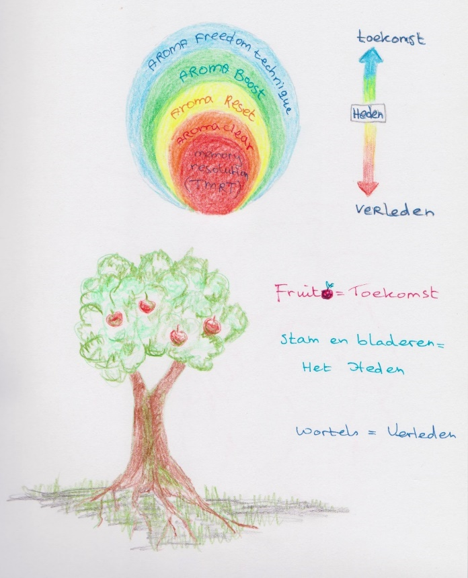 AROMA Freedom technique
AROMA Boost
Aroma Reset
AROMA Clear
memory
resolution
(TMRT)
toekomst
Heden
Verleden
Fruit = Toekomst
Stam en bladeren =
Het Heden
Wortels = Verleden